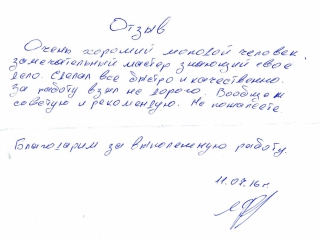 Отзыв
Очень хороший молодой человек,
замечательный мастер знающий свое
дело. Сделал все быстро и качественно.
За работу взял не дорого. Вообщем
советую и рекомендую. Не пожалеете.
Благодарим за выполненную работу.
11.04.16 г.